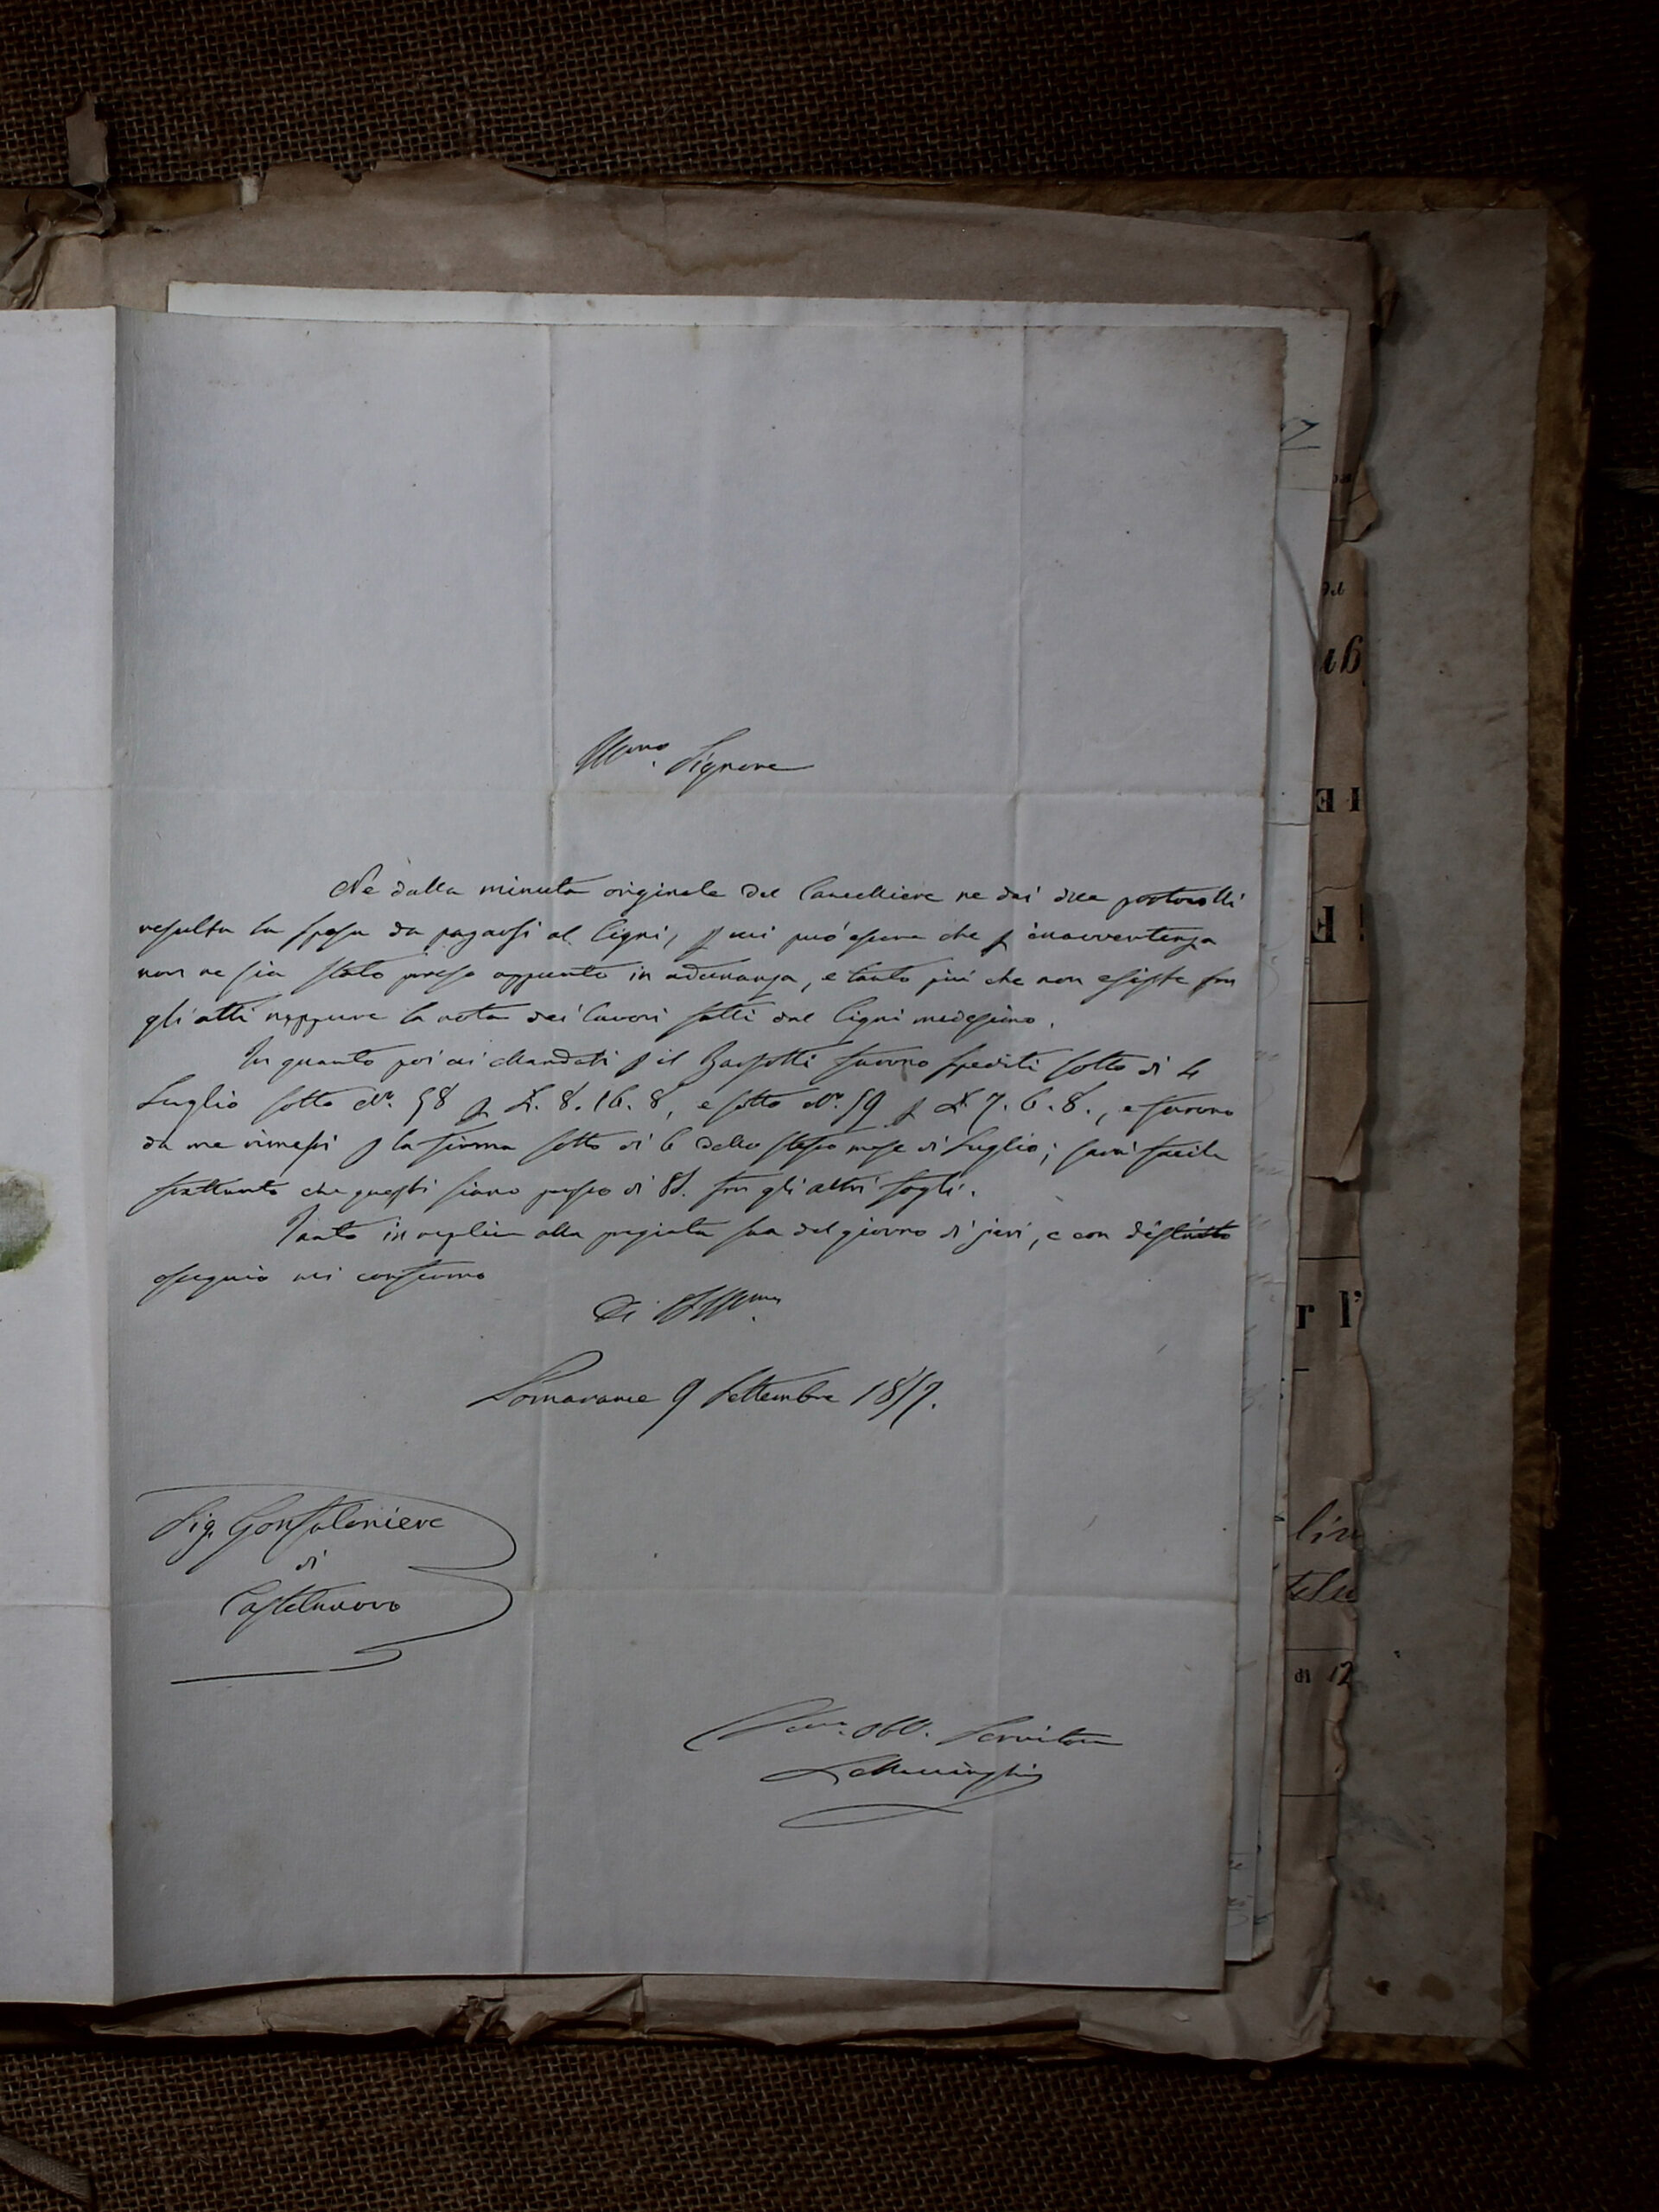 Illmo. Signore
Ne dalla minuta originale del Cancelliere ne dai due protocolli
resulta la spesa da pagarsi al Cigni, p cui può essere che p inavvertenza
non ne sia stato preso appunto in adunanza, e tanto più che non esiste fra
gli atti neppure la nota dei lavori fatti dal Cigni medesimo.
In quanto poi ai Mandati p il Bassotti furono spediti sotto di 4
Luglio sotto No. 58 p £. 8.16.8, e sotto No. 59 p £ 7.6.8., e furono
da me rimessi p la firma sotto di 6 dello stesso mese di Luglio; sarà facile
frattanto che questi siano presso di fra gli altri fogli.
Tanto in replica alla pregiata sua del giorno di jeri, e con distinto
ossequio mi confermo
Di VSIllma.
Pomarance 9 Settembre 1857.
Sig. Gonfaloniere
di
Castelnuovo
Devmo. Obb. Servitore
di 12